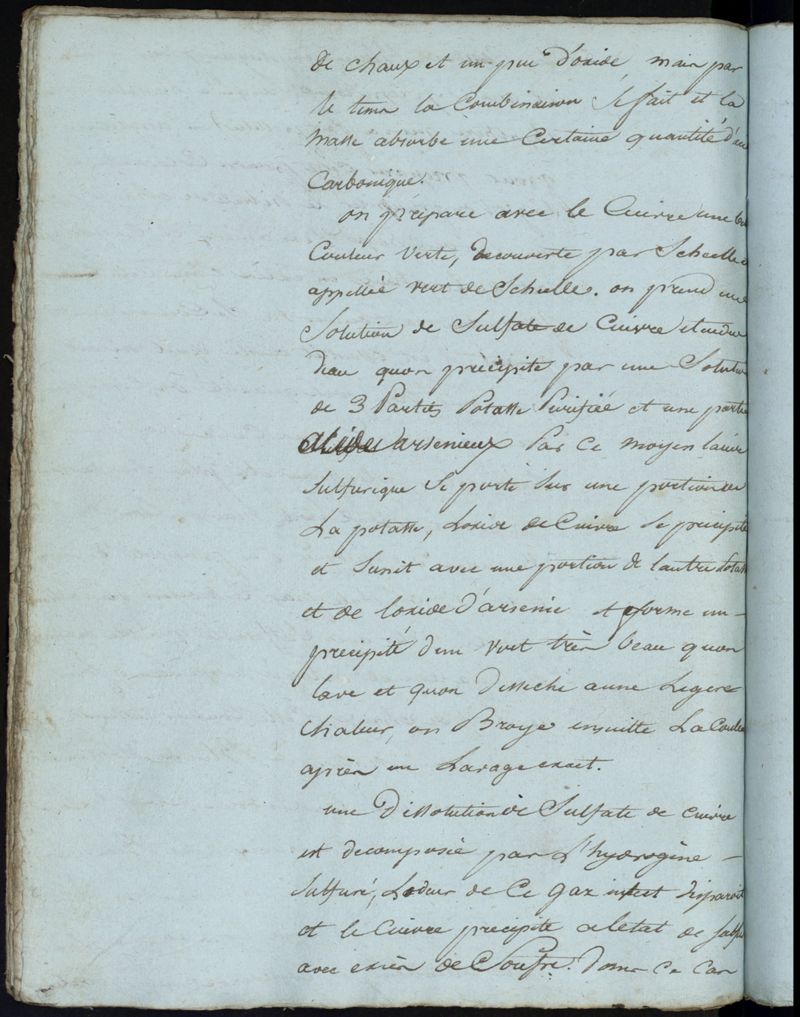 de chaux et un peu d'oxide mais par
le tems la Combinaison Se fait et la
masse absorbe une Certaine quantité d'
Carbonique.
on prépare avec le Cuivre une
Couleur verte, decouverte par Scheelle
appellée vert de Schelle. on prend une
Solution de Sulfate de Cuivre etendue
deau quon précipite par une Solution
de 3 Parties Potasse Purifiée et une partie
acide arsenieux Par Ce moyen lacide
Sulfurique Se porte Sur une portion de
La potasse, Loxide de Cuivre Se precipite
et Sunit avec une portion de lautre Potasse
et de loxide d'arsenic et forme un
precipité dun vert très beau quon
lave et quon desseche a une Legere
chaleur, on Broye ensuitte La Couleur
après un Lavage exact.
une Dissolution de Sulfate de cuivre
est decomposée par L'hydrogène
Sulfuré, Lodeur de Ce gaz infect disparoit
et le Cuivre precipite a letat de Sulfure
avec excès de Soufre. Dans Ce Cas